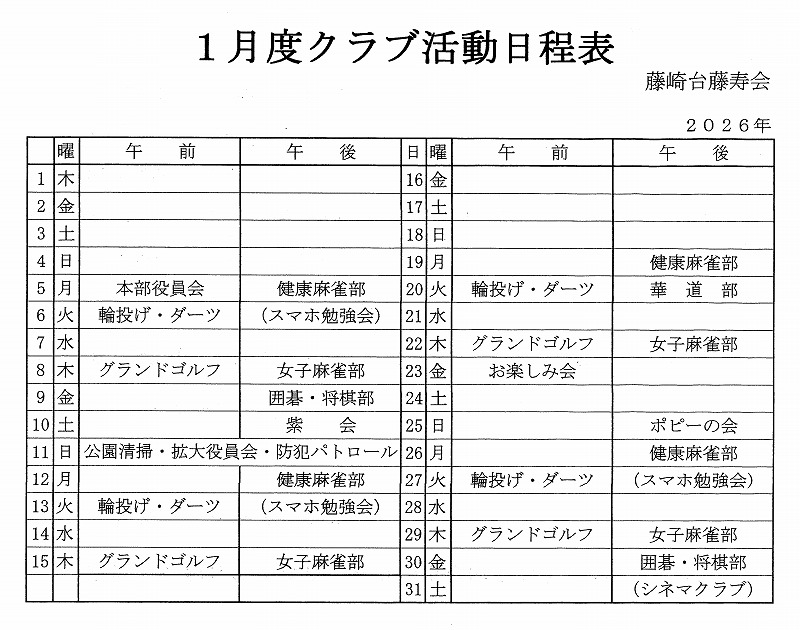 １月度クラブ活動日程表
藤崎台藤寿会
２０２６年
曜 午 前 午 後 日 曜 午 前 午 後
1 木 16 金
2 金 17 土
3 土 18 日
4 日 19 月 健康麻雀部
5 月 本部役員会 健康麻雀部 20 火 輪投げ・ダーツ 華 道 部
6 火 輪投げ・ダーツ （スマホ勉強会） 21 水
7 水 22 木 グランドゴルフ 女子麻雀部
8 木 グランドゴルフ 女子麻雀部 23 金 お楽しみ会
9 金 囲碁・将棋部 24 土
10 土 紫 会 25 日 ポピーの会
11 日 公園清掃・拡大役員会・防犯パトロール 26 月 健康麻雀部
12 月 健康麻雀部 27 火 輪投げ・ダーツ （スマホ勉強会）
13 火 輪投げ・ダーツ （スマホ勉強会） 28 水
14 水 29 木 グランドゴルフ 女子麻雀部
15 木 グランドゴルフ 女子麻雀部 30 金 囲碁・将棋部
31 土 （シネマクラブ）